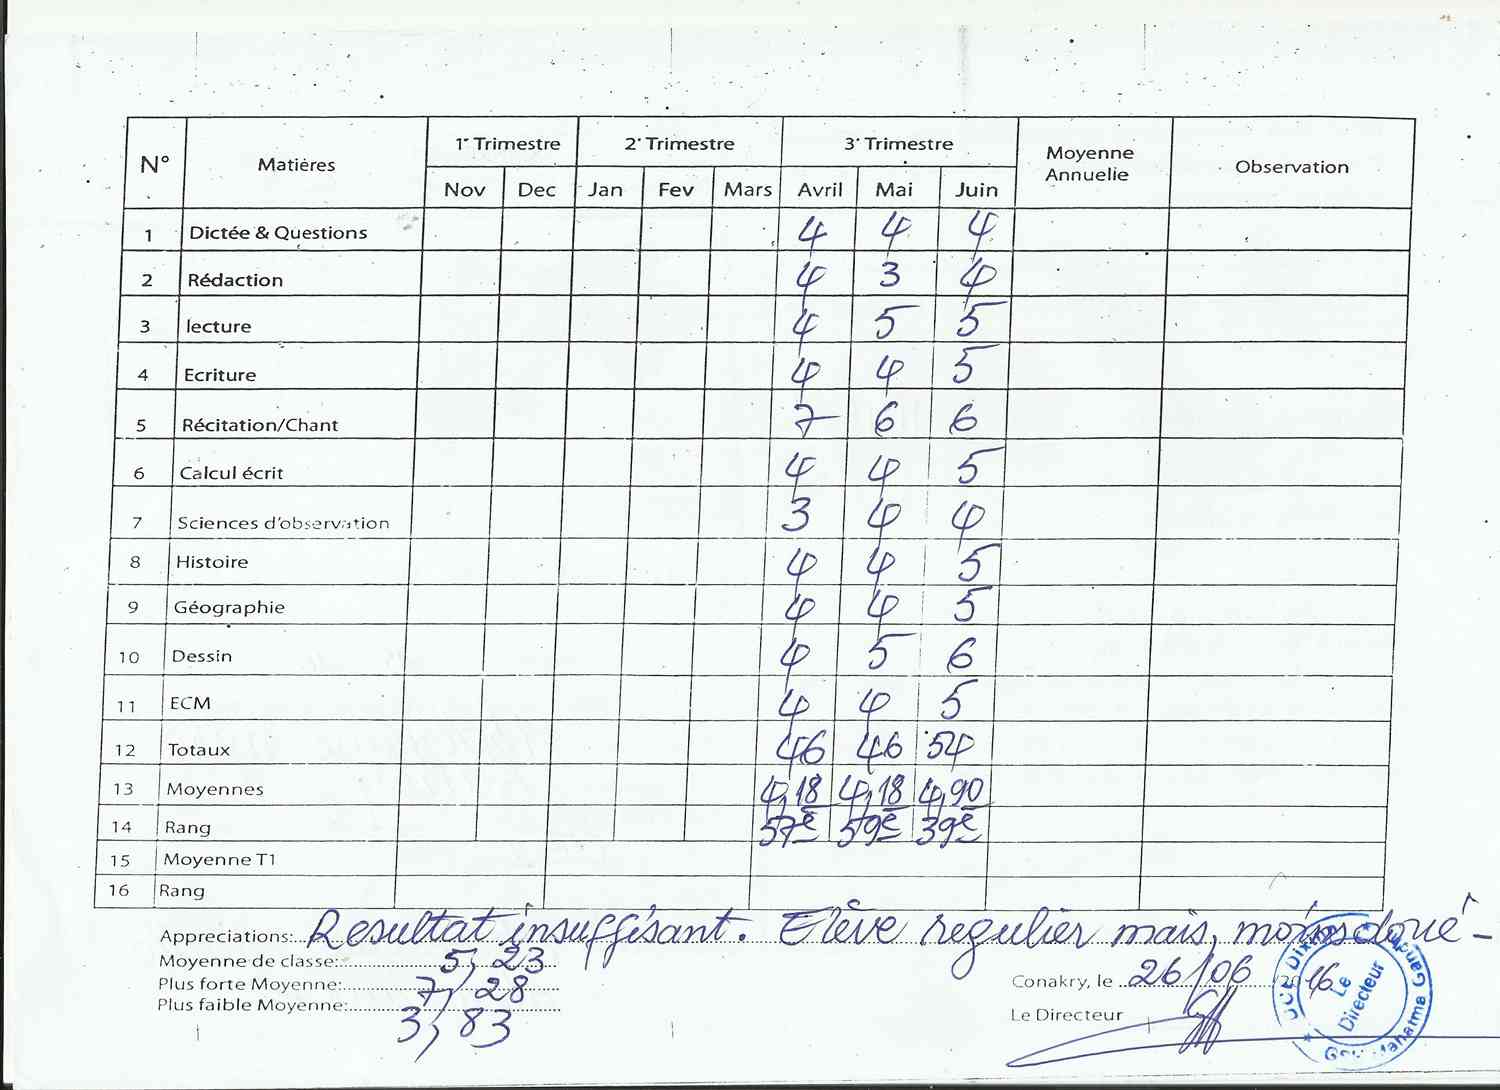 N° Matières 1er Trimestre 2e Trimestre 3e Trimestre Moyenne Annuelle Observation
Nov Dec Jan Fev Mars Avril Mai Juin
1 Dictée & Questions 4 4 4
2 Rédaction 4 3 4
3 lecture 4 5 5
4 Ecriture 4 4 5
5 Récitation/Chant 7 6 6
6 Calcul écrit 4 4 5
7 Sciences d'observation 3 4 4
8 Histoire 4 4 5
9 Géographie 4 4 5
10 Dessin 4 5 6
11 ECM 4 4 5
12 Totaux 46 46 54
13 Moyennes 4,18 4,18 4,90
14 Rang 57e 59e 39e
15 Moyenne T1
16 Rang
Appreciations: Resultat insuffisant. Elève regulier mais, moins doué-
Moyenne de classe: 5,23
Plus forte Moyenne: 7,28
Plus faible Moyenne: 3,83
Conakry, le 26/06 /2016
Le Directeur
Le Directeur
Mahatma Gandhi